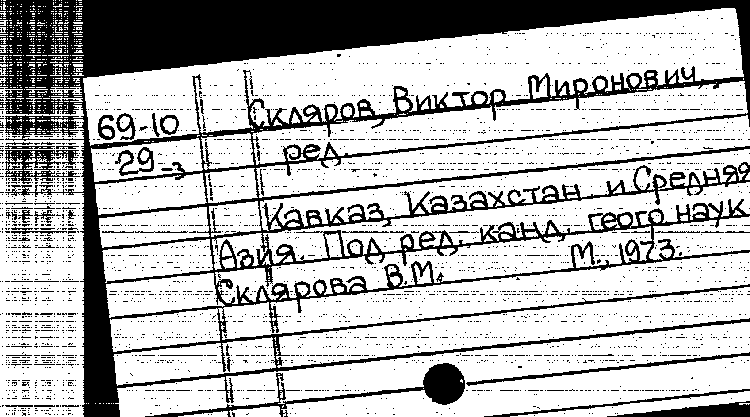 69-10
29-3
Скляров, Виктор Миронович,
ред.
Кавказ, Казахстан и Средняя
Азия. Под ред. канд. геогр наук
Склярова В.М. М., 1973.